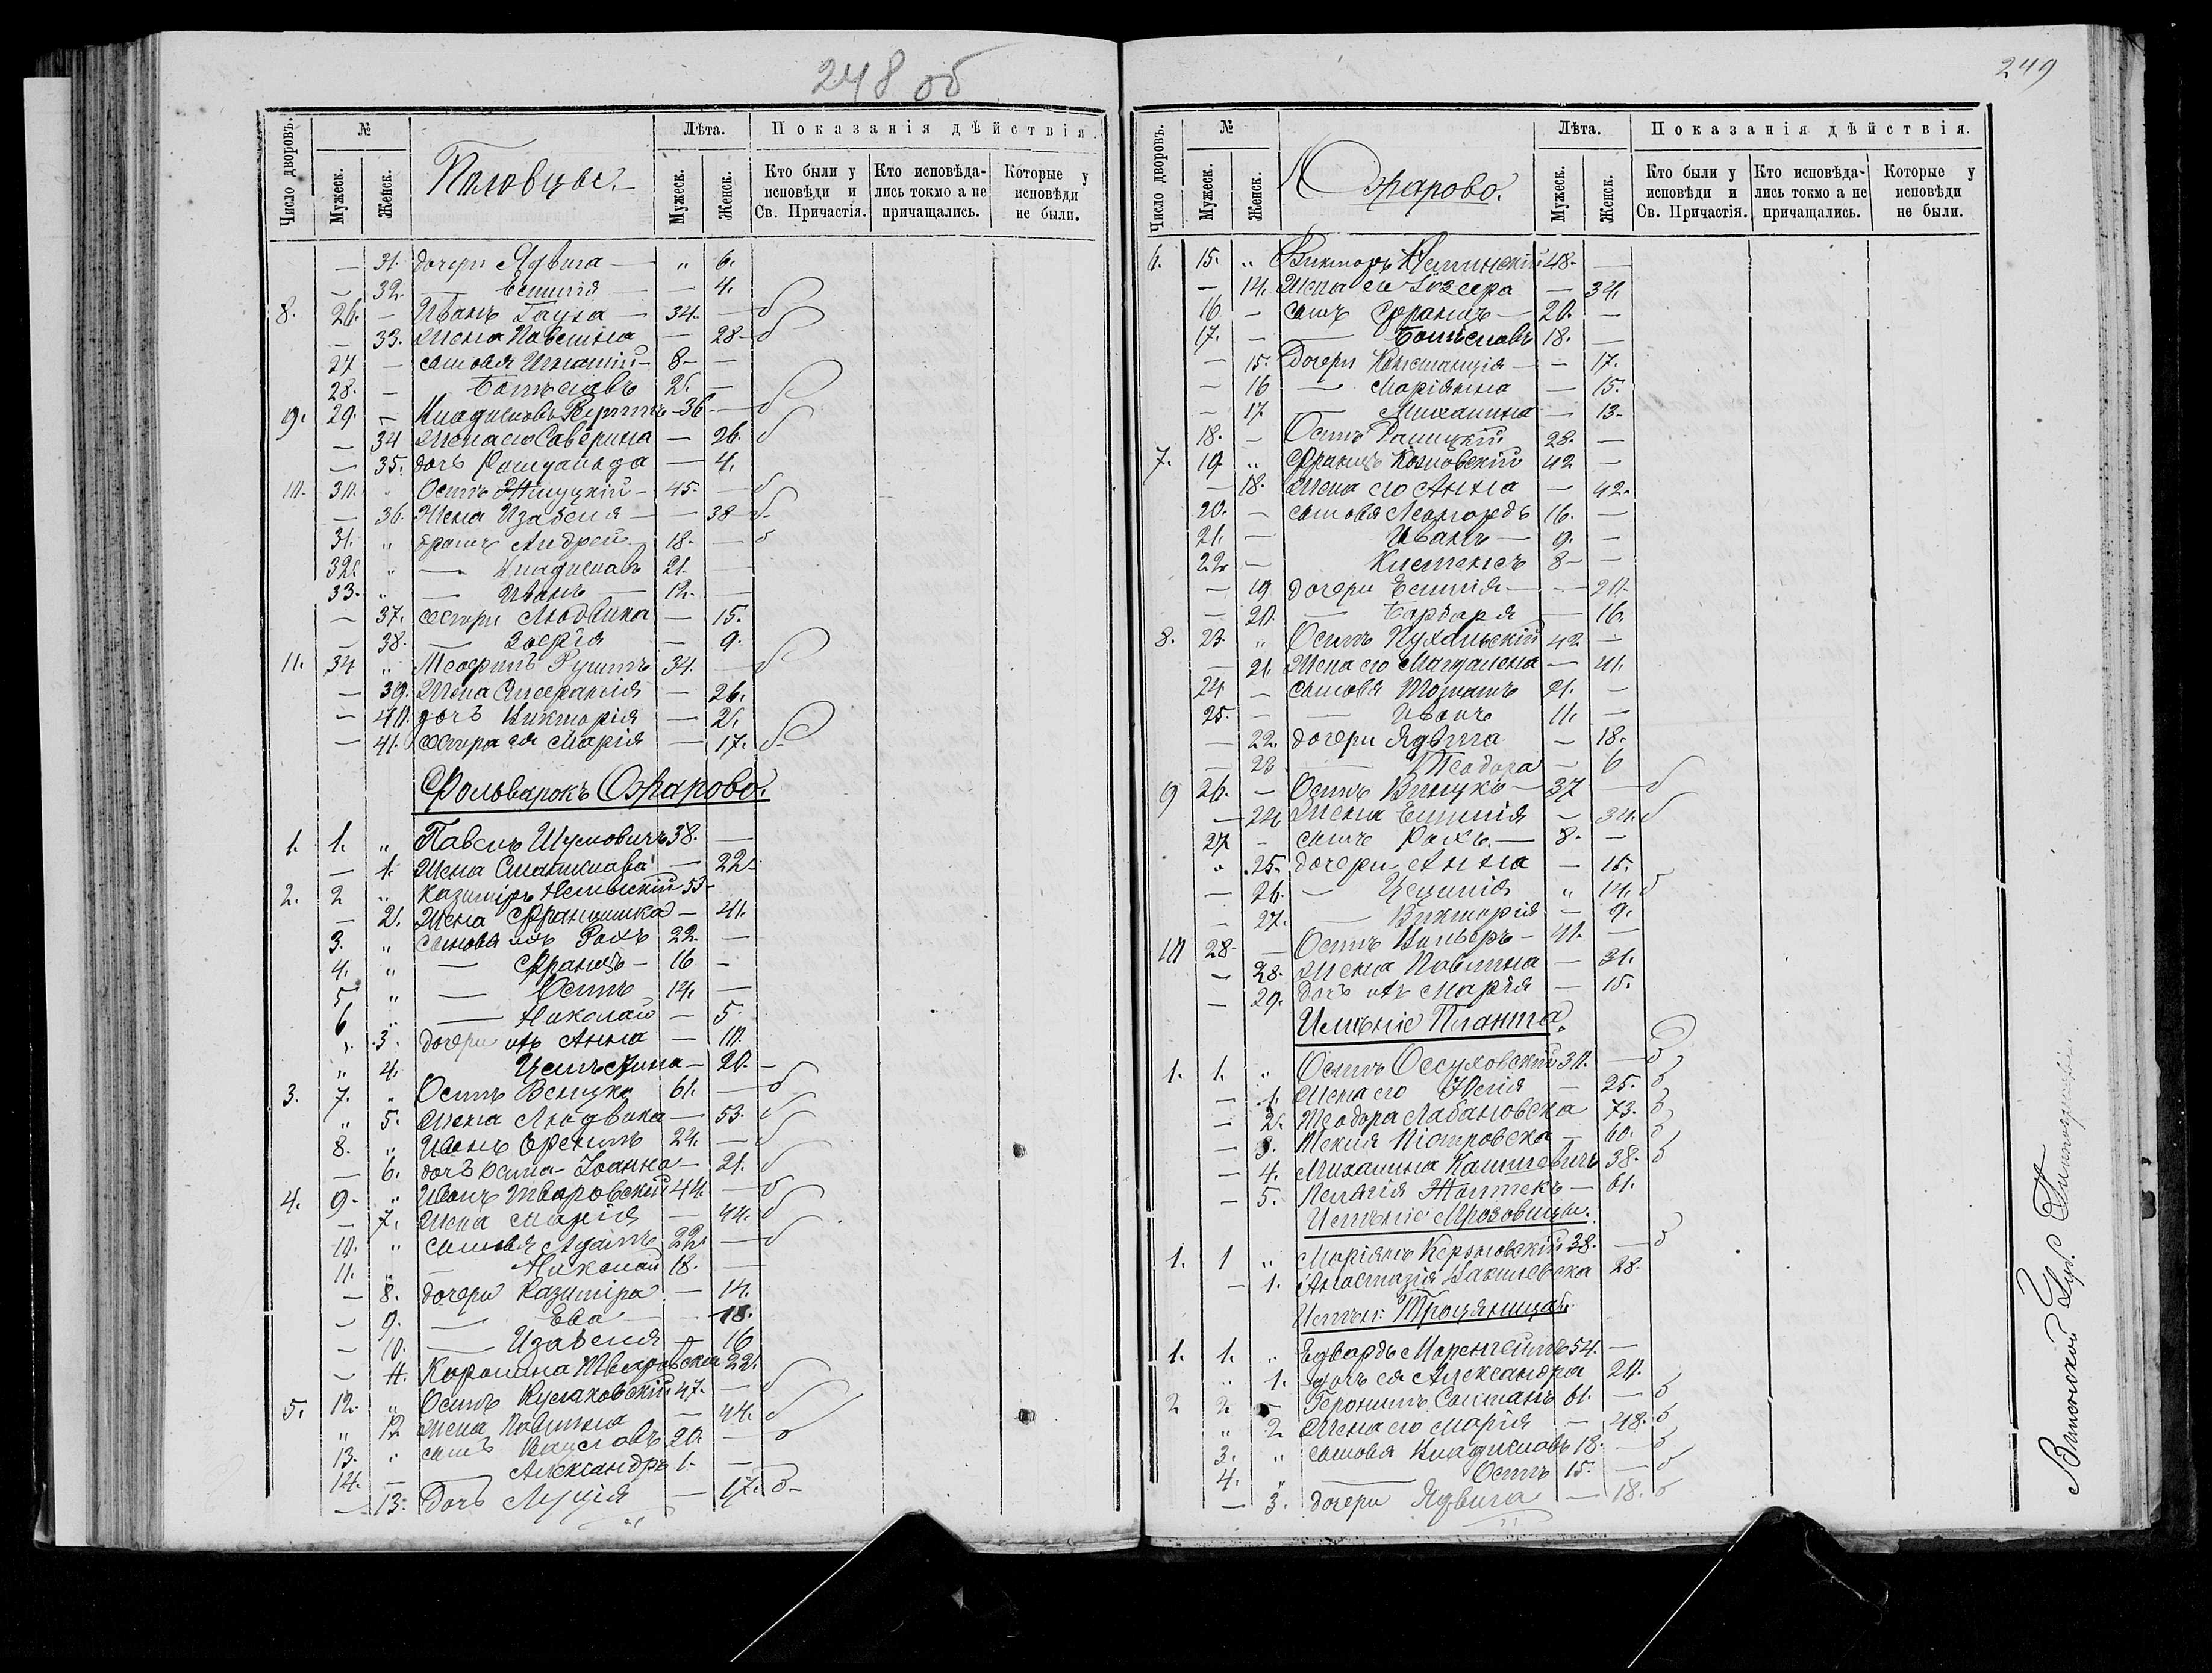 248 об
Число дворовъ. № Мужеск. Женск. Пиловцы. Лѣта. Мужеск. Женск. Показанія дѣйствія.
Кто были у исповѣди и Св. Причастія. Кто исповѣда-лись токмо а не причащались. Которые у исповѣди не были.
— 31. дочери Ядвига — " 6.
— 32. — Емилія — — 4.
8. 26. — Иванъ — 34. — б
— 33. Жена — 28 — б
27 — сыновья Игнатій — 8 — —
28. — Болеславъ 2. —
9. 29. — 36 — б
— 34 Жена его Северина — 26. б
— 35. дочь — 4.
10. 30. " Осипъ — 45. — б
— 36. Жена Изабеля — — 38 — б
31. " братъ Андрей 18. — б
32. " — Владиславъ 21. —
33. " — Иванъ — 12. —
— 37. сестры Людвика — 15.
— 38. — Зофія — 9.
11. 34 " 34. — б
— 39. Жена — 26.
— 40. дочь Викторія — 2.
— 41. сестра ея Марія — 17. б
Фольварокъ Ожарово.
1. 1. " Павелъ Шумовичъ 38. —
— 1. Жена Станислава — 22.
2. 2 " Казиміръ 53 —
— 2. Жена Францишка — 41.
3. " сыновья ихъ Рохъ 22. —
4. " — Францъ — 16 —
5. " — Осипъ 14. —
6 " — Николай — 5
" 3. дочери ихъ Анна — 10.
" 4. — 20. —
3. 7. " Осипъ 61. — б
" 5. Жена Людвика — 53. б
8. " Иванъ 24. — б
— 6. дочь Іоанна — 21. б
4. 9. " Иванъ Тваровскій 44. — б
— 7. Жена Марія — 44. б
10. " сыновья Адамъ 22. — б
11. " — Николай 18. —
— 8. дочери Казиміра — 14.
— 9. — Ева — 18.
— 10. — Изабеля — 16
— 11. Каролина Тваровска 22.
5. 12. " Осипъ 47. — б
" 12 Жена Павлина — 44. б
13. " сынъ Вацславъ 20. — б
14. — Александръ 1. —
— 13. Дочь Луція — 17. б —
249
Число дворовъ. № Мужеск. Женск. Ожарово. Лѣта. Мужеск. Женск. Показанія дѣйствія.
Кто были у исповѣди и Св. Причастія. Кто исповѣда-лись токмо а не причащались. Которые у исповѣди не были.
6. 15. " Викторъ 48. —
— 14. Жена его Іозефа — 34.
16 — сынъ Францъ — 20. —
17. — — Болеславъ 18. —
— 15. Дочери Констанція — — 17.
— 16 — Маріянна — 15.
— 17 — Михалина — 13.
18. — Осипъ 28. —
7. 19. " Францъ Козловскій 42 —
— 18. Жена его Анна — 42.
20. — сыновья Леопольдъ 16. —
21. — Иванъ — 9. —
22 — 8 — —
— 19 дочери Емилія — — 20.
— 20. — Барбара — 16.
8. 23. " Осипъ Пухальскій 42 —
— 21. Жена его Магдалена — 41.
24. — сыновья 21. —
25. — — Иванъ 11. —
— 22. дочери Ядвига — 18.
— 23 — Теодора — 6
9 26. — Осипъ 37 — б
— 24. Жена Емилія — 34. б
27 — сынъ Рохъ — 8. —
" 25. дочери Анна — 16.
— 26. — Цецилія " 14. б
— 27. — Викторія — 9.
10 28. — Осипъ 41. —
— 28. Жена Павлина — 31.
— 29. дочь ихъ Марія — 15.
Имѣніе Планта.
1. 1. " Осипъ Оссуховскій 30. — б
— 1. Жена его Юлія — 25. б
— 2. Теодора Лабановска 73. б
— 3. Текля Піотровска — 60. б
— 4. Михалина 38. б
— 5. Пелагія — 61.
Имѣніе Мрозовицы.
1. 1 " Маріянъ 38. — б
— 1. Анастазія 28.
Имѣн: Троцяница.
1. 1. " Едвардъ 54. —
" 1. дочь ея Александра 20.
2 2 — Геронимъ 61. — б
" 2 Жена его Марія — 48. б
3. " сыновья Владиславъ 18. — б
4. " — Осипъ 15. — б
— 3. дочери Ядвига — 18. б
Виленской Губ. Типографіи